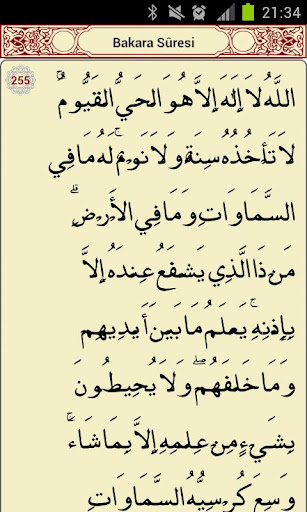 21:34
Bakara Sûresi
255
اللَّهُ لَا إِلَهَ إِلَّا هُوَ الْحَيُّ الْقَيُّومُ ۚ
لَا تَأْخُذُهُ سِنَةٌ وَلَا نَوْمٌ ۚ لَهُ مَا فِي
السَّمَاوَاتِ وَمَا فِي الْأَرْضِ ۗ
مَن ذَا الَّذِي يَشْفَعُ عِندَهُ إِلَّا
بِإِذْنِهِ ۚ يَعْلَمُ مَا بَيْنَ أَيْدِيهِمْ
وَمَا خَلْفَهُمْ ۖ وَلَا يُحِيطُونَ
بِشَيْءٍ مِنْ عِلْمِهِ إِلَّا بِمَا شَاءَ ۚ
وَسِعَ كُرْسِيُّهُ السَّمَاوَاتِ